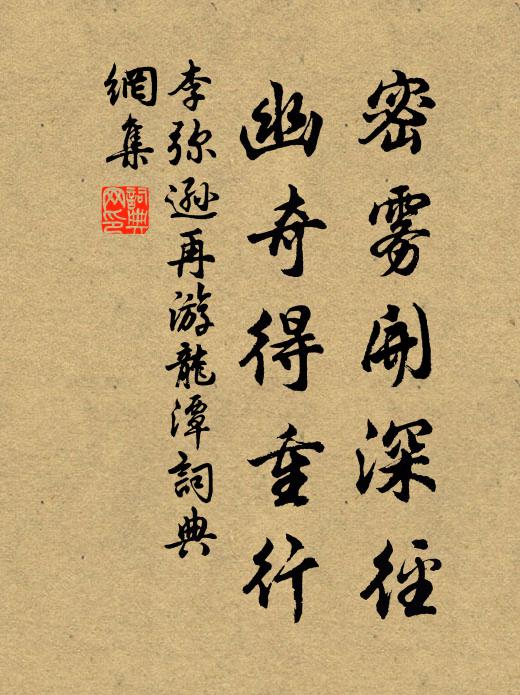 密雾開深徑
幽奇得重行
李弥遜再游龍潭詞典
網集
詞典
网印